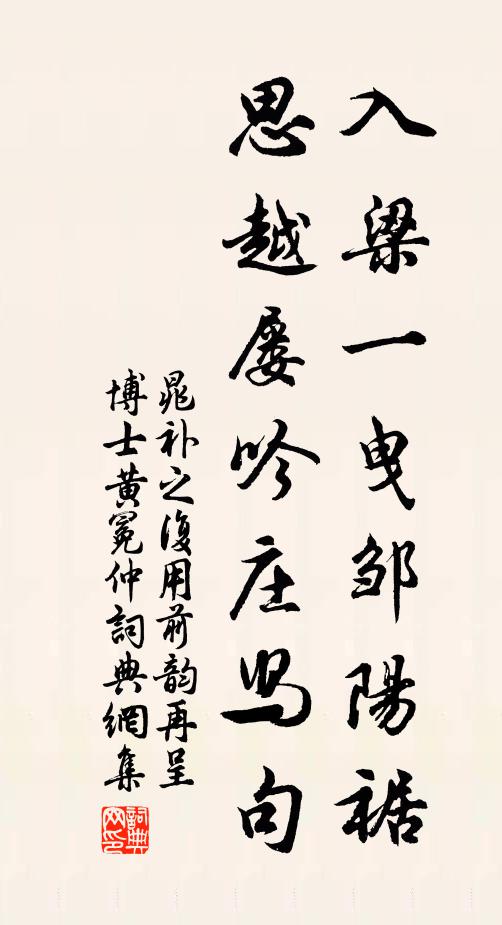 入梁一曳邹陽裾
思越屡吟庄舄句
晁补之復用前韵再呈
博士黄冕仲詞典網集
詞典網印